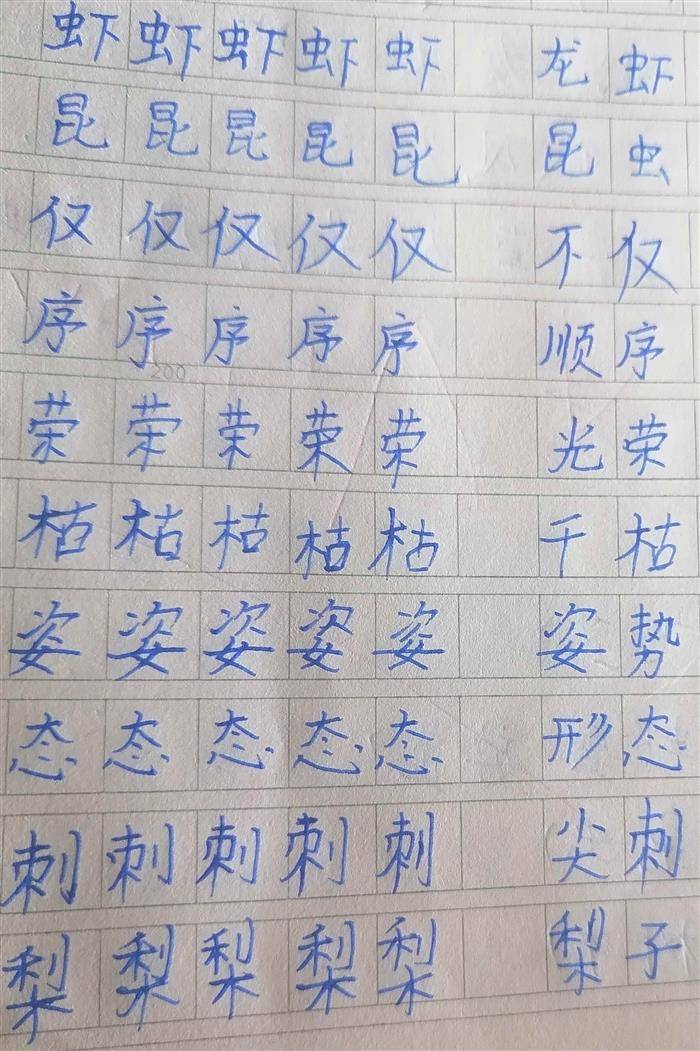 虾虾虾虾虾 龙虾
昆昆昆昆昆 昆虫
仅仅仅仅仅 不仅
序序序序序 顺序
200
荣荣荣荣荣 光荣
枯枯枯枯枯 干枯
姿姿姿姿姿 姿势
态态态态态 形态
刺刺刺刺刺 尖刺
梨梨梨梨梨 梨子